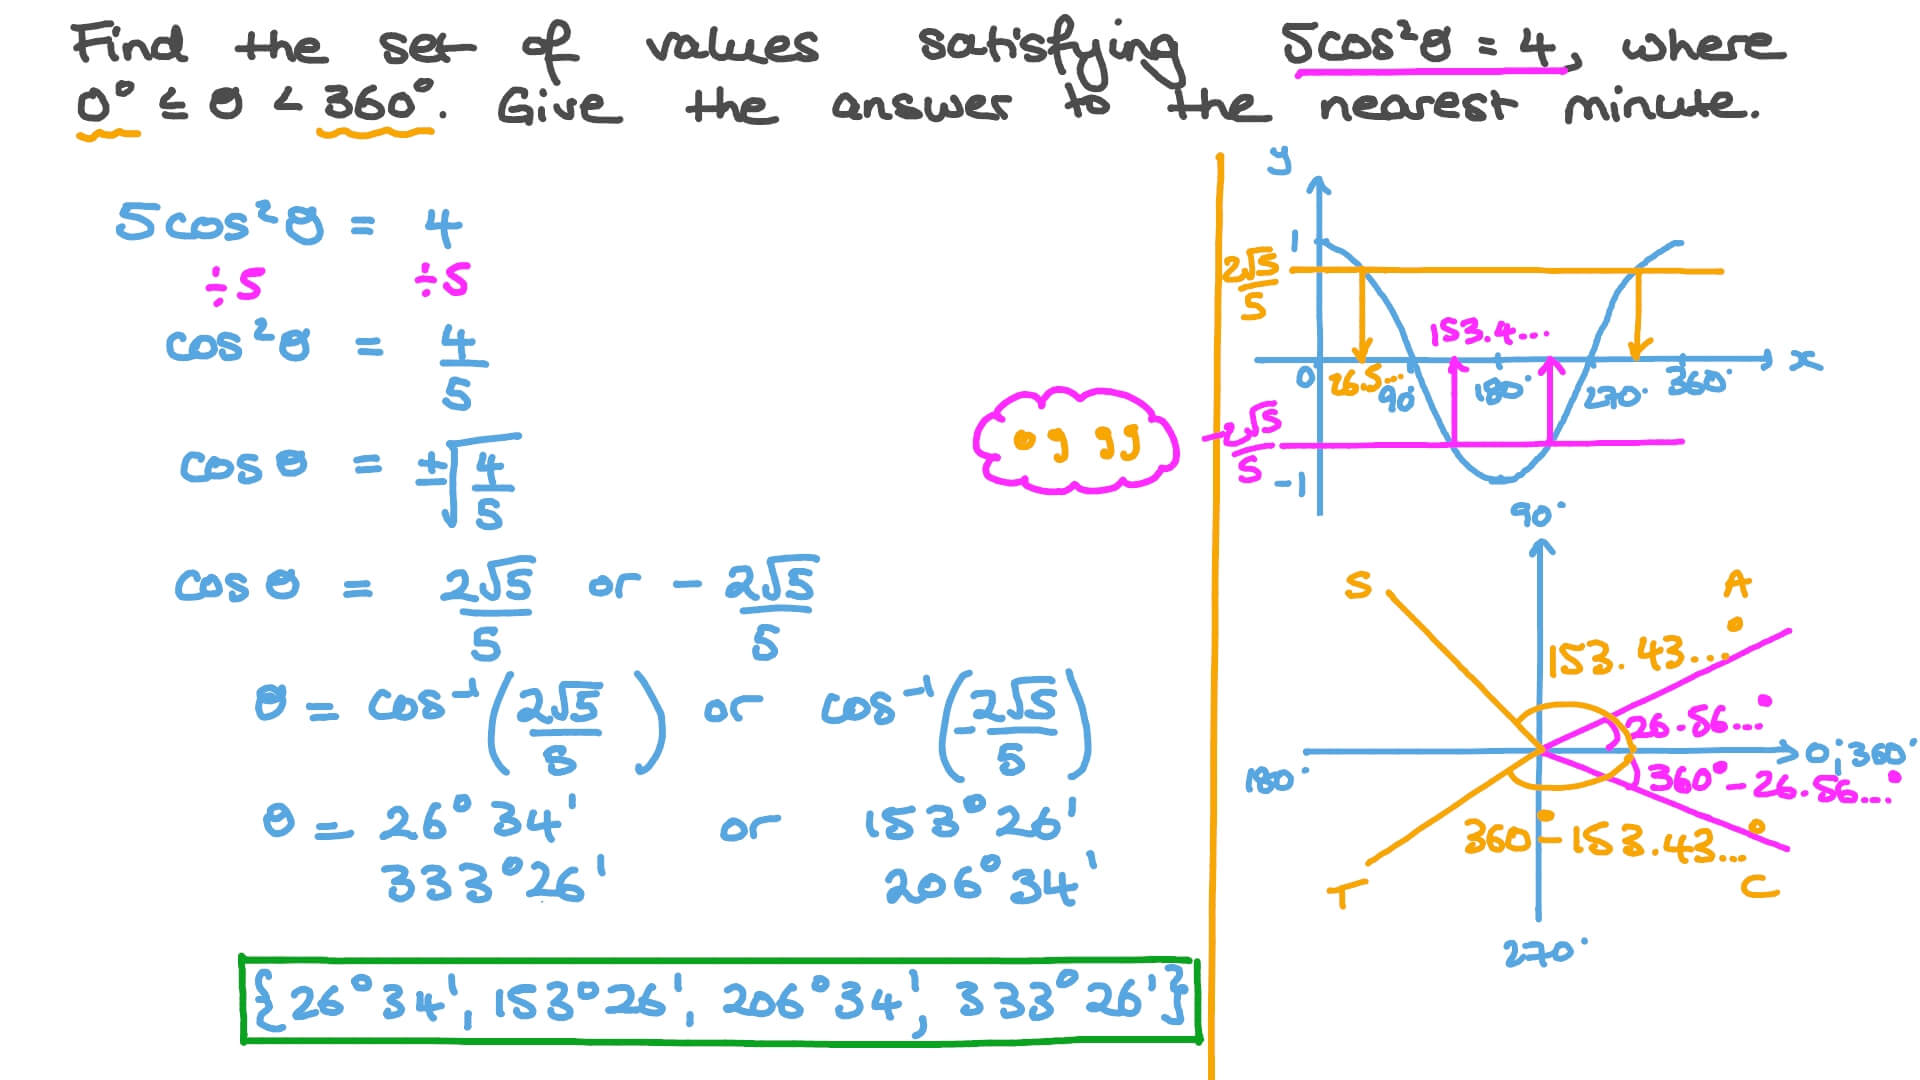 Find the set of values satisfying 5cos²θ = 4, where
0° ≤ θ < 360°. Give the answer to the nearest minute.
5cos²θ = 4
÷5 ÷5
cos²θ = 4/5
cos θ = ±√(4/5)
cos θ = 2√5/5 or -2√5/5
θ = cos⁻¹(2√5/5) or cos⁻¹(-2√5/5)
θ = 26°34' or 153°26'
333°26' 206°34'
{26°34', 153°26', 206°34', 333°26'}
y
1
2√5/5
153.4...
0 26.5... 90° 180° 270° 360° x
-2√5/5
-1
90°
S A
153.43...°
26.56...°
180° 0;360°
360°-26.56...°
360°-153.43...°
T C
270°